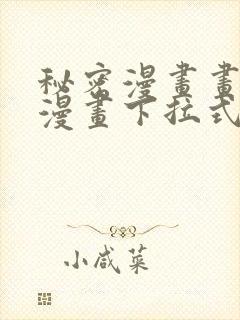 秘密漫畫畫
漫畫下拉式
小咸菜